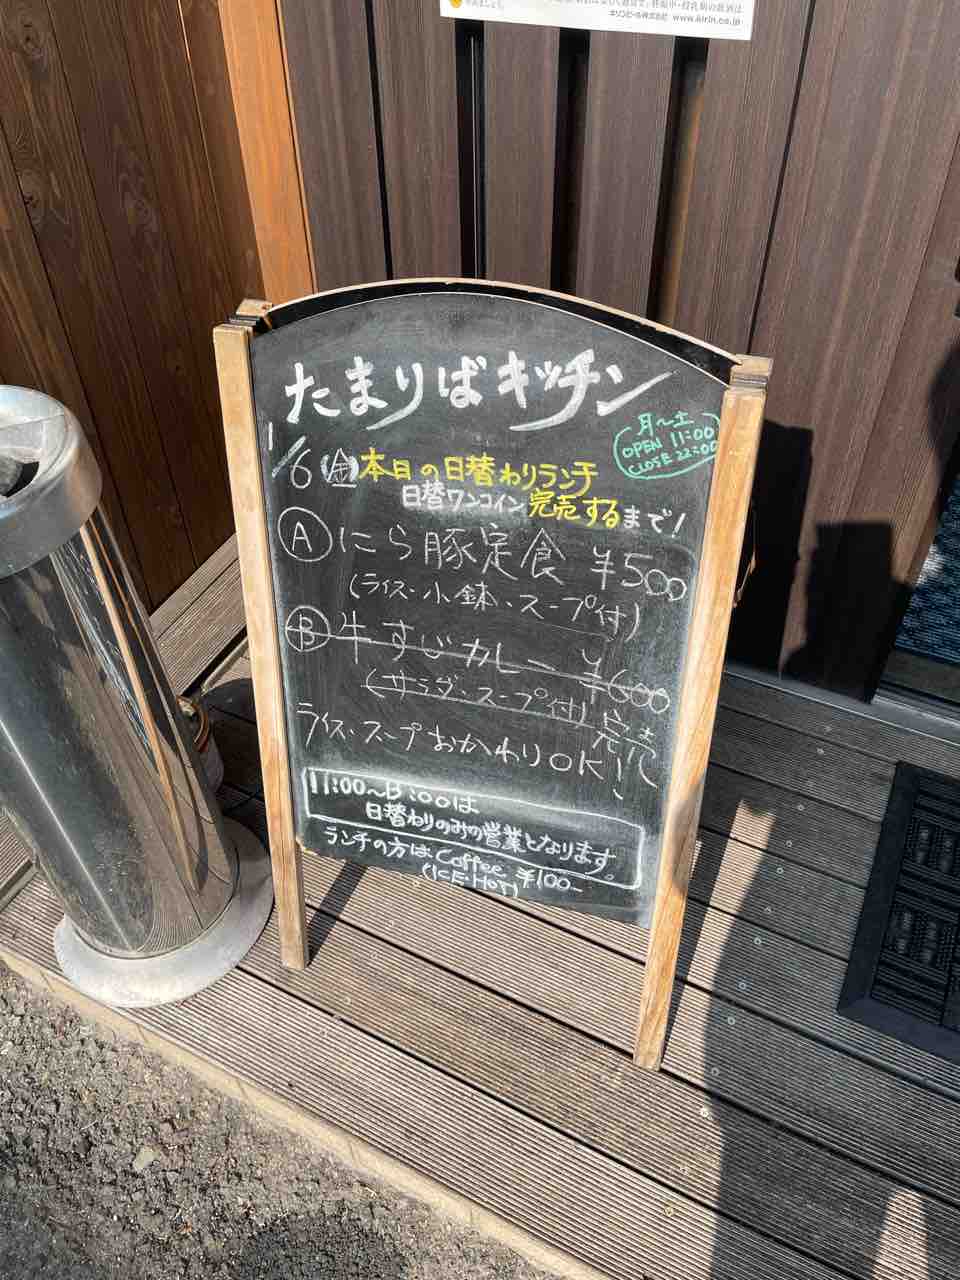 キリンビール株式会社 www.kirin.co.jp
たまりばキッチン
月〜土
OPEN 11:00
CLOSE 22:00
1/6(金)本日の日替わりランチ
日替ワンコイン完売するまで!
Ⓐにら豚定食 ¥500
(ライス・小鉢・スープ付)
Ⓑ牛すじカレー ¥600
(サラダ・スープ付)完売!!
ライス・スープおかわりOK!
11:00〜13:00は
日替わりのみの営業となります。
ランチの方はCoffee ¥100-
(ICE・HOT)